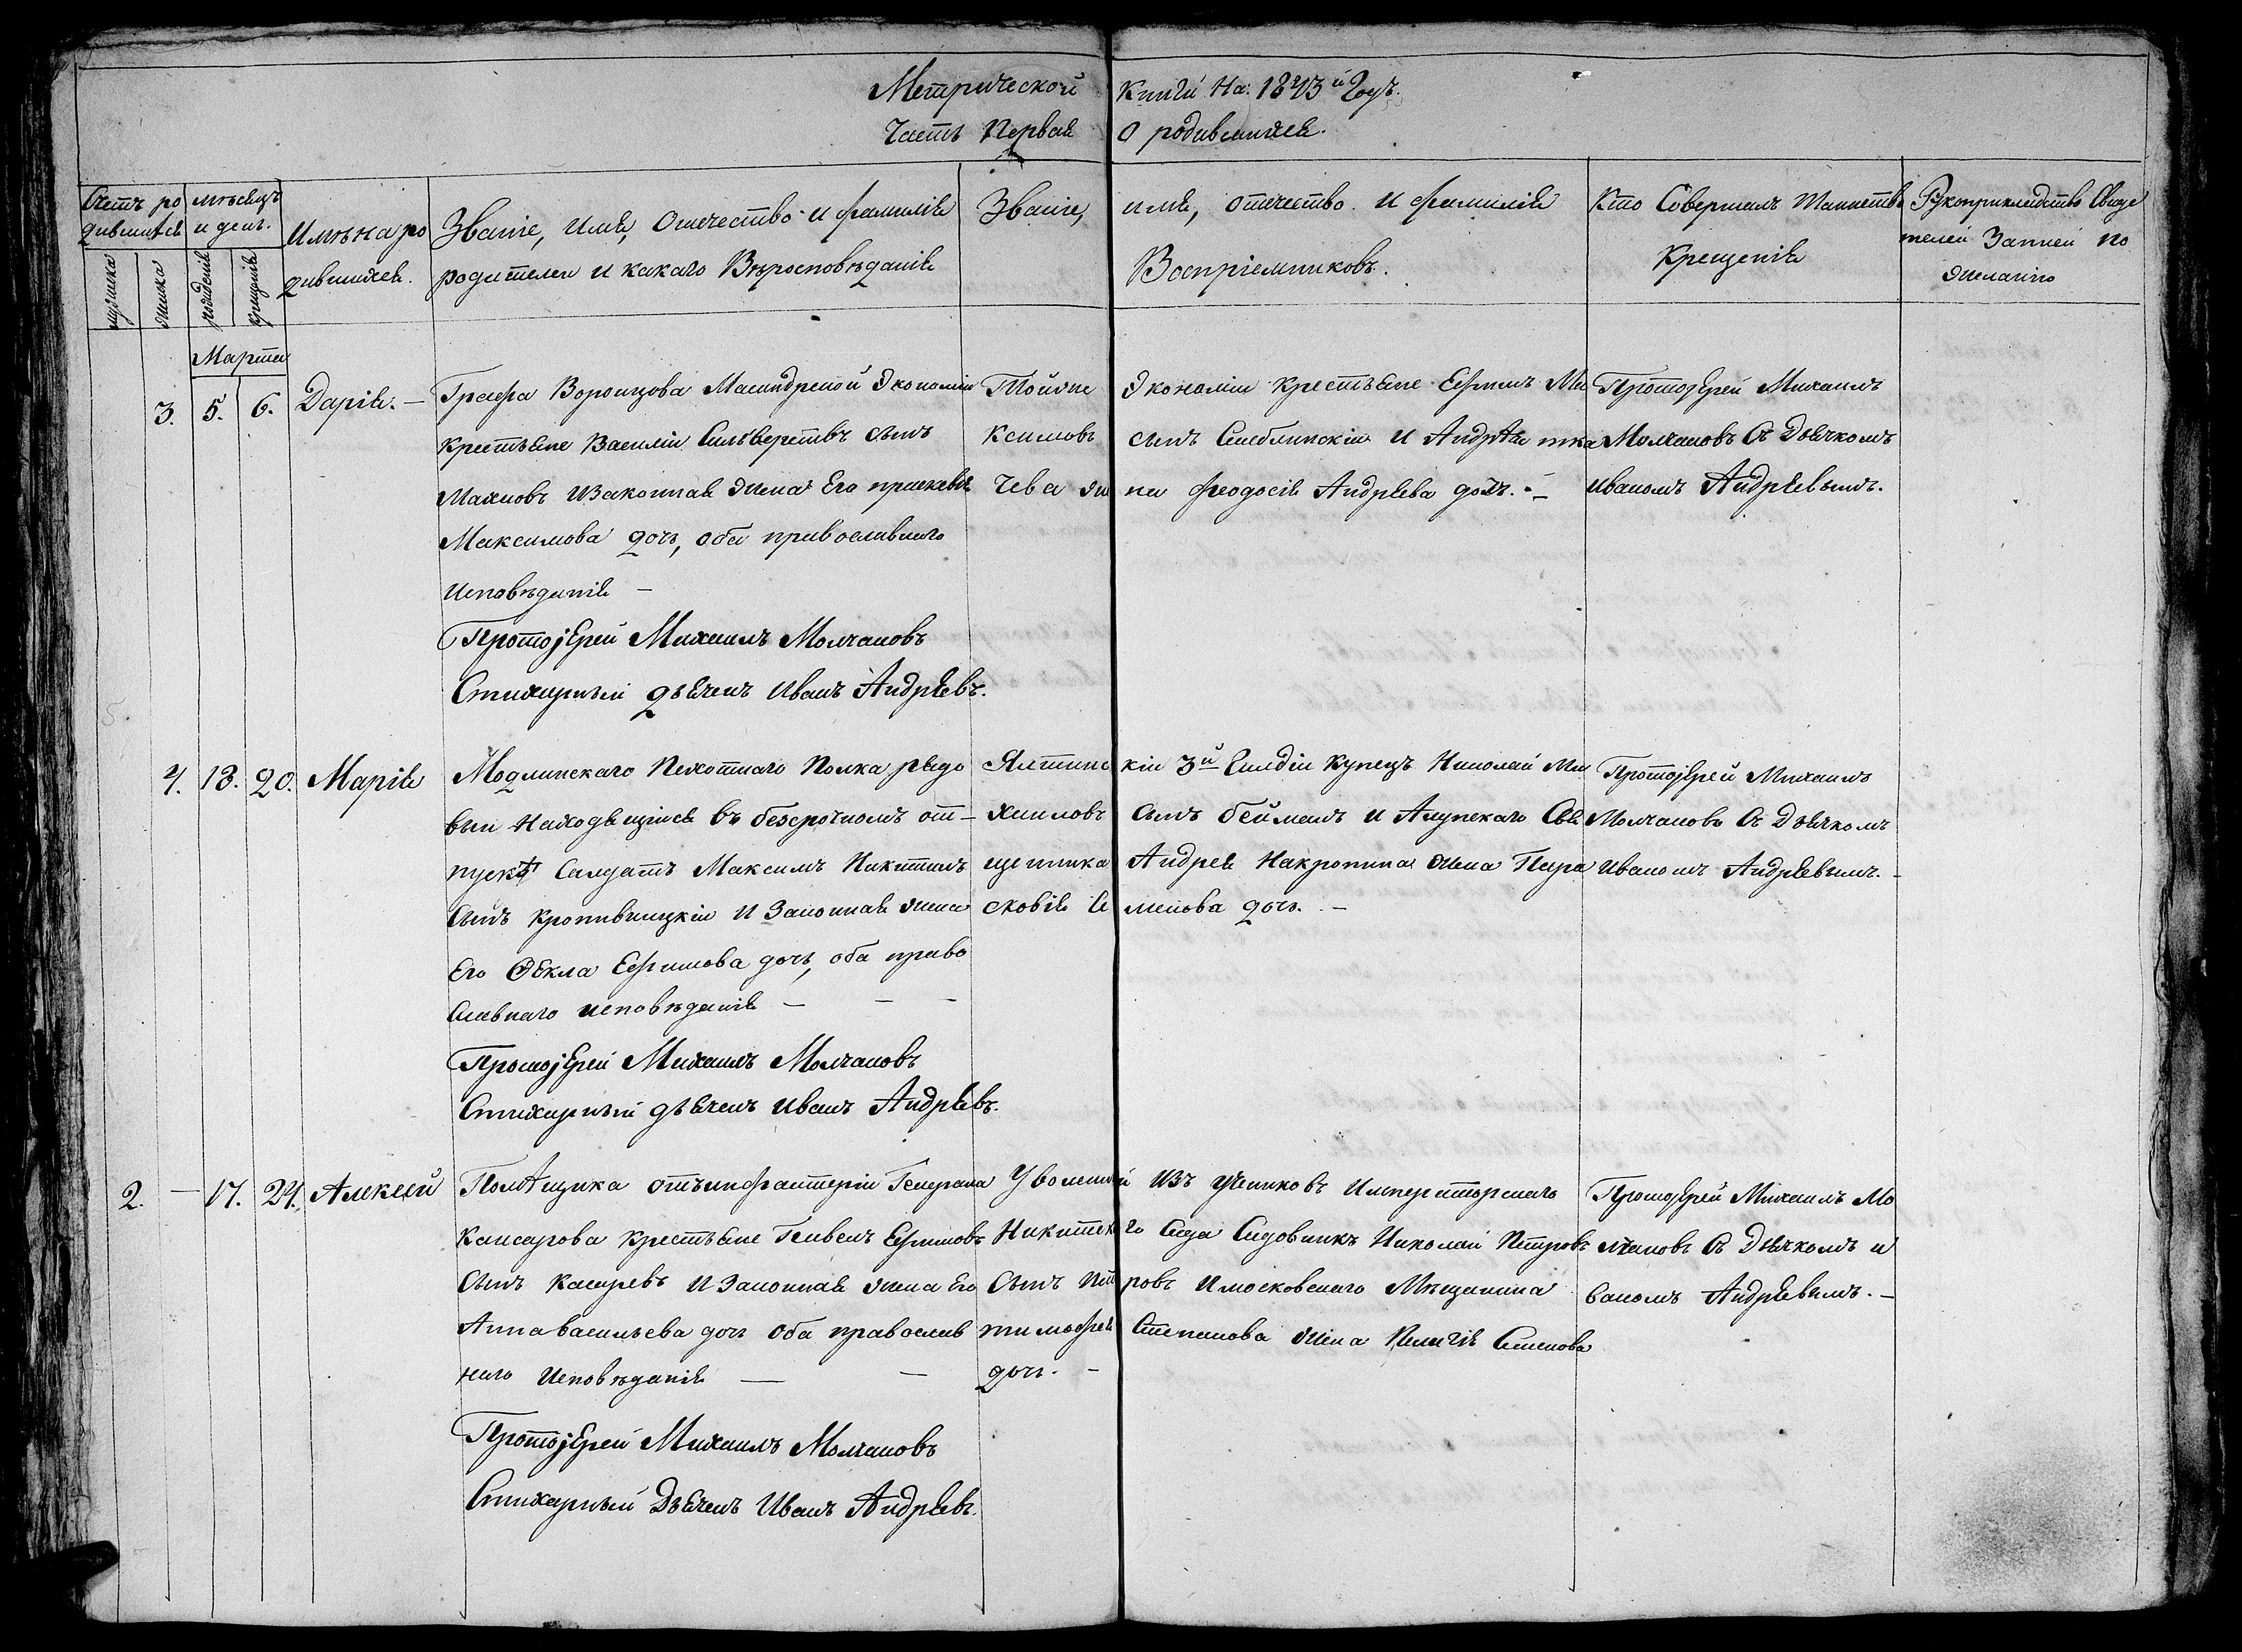 Метрической Книги На: 1843й Годъ.
Часть Первая О родившихся.
Счетъ ро
дившихся
мужеска
женска
мѣсяцъ
и день.
рожденія
крещенія
Имѣна ро
дившихся.
Званіе, имя, Отечество и фамилія
родителеи и какаго Вѣросповѣданія
Званіе, имя, отечество и фамилія
Воспріемниковъ.
Кто Совершалъ Таинство
Крещенія
Рукоприкладство Свиде
телей Записи по
желанію
Марта
3. 5. 6. Дарія. —
Графа Воронцова Масандрской Экономіи
крестьяне Василіи Сильверствъ сынъ
Махновъ изаконная жена Его праскевія
Максимова дочь, оба православнаго
исповѣданія —
Протоjерей Михаилъ Молчановъ
Стихарныи дьячекъ Иванъ Андрѣевъ.
Тойже Экономіи крестьяне Ефимъ Ма
ксимовъ сынъ и Андрѣя тка
чева жена феодосія Андрѣева дочь. —
Протоjерей Михаилъ
Молчановъ Съ Дьячкомъ
иваномъ Андрѣевымъ.
4. 13. 20. Марія
Модлинскаго Пехотнаго Полка рядо
выи находящіися въ безсрочномъ от-
пускѣ Салдатъ Максимъ Никитинъ
Сынъ Кропивницкіи и Законная жена
Его Фекла Ефимова дочь, оба право
славнаго исповѣданія — — —
Протоjерей Михаилъ Молчановъ
Стихарныи дьячекъ иванъ Андрѣевъ.
Ялтинскіи 3й Гилдіи купецъ Николай Ми
хаиловъ Сынъ беймамъ и Алупскаго Свя
щенника Андрея Накропина жена Пара
сковія Семенова дочь. —
Протоjерей Михаилъ
Молчановъ Съ Дьячкомъ
Иваномъ Андрѣевымъ. —
2. — 17. 24. Алексѣй
Помѣщика отъинфантеріи Генерала
Каисарова крестьяне Павелъ Ефимовъ
Сынъ Касаревъ и Законная жена Его
Анна васильева дочь Оба православ
наго Исповѣданія — —
Протоjерей Михаилъ Молчановъ
Стихарный Дьячекъ Иванъ Андрѣевъ.
Уволенный Изъ учениковъ Императорскаго
Никитскаго Сада Садовникъ Николай Петровъ
Сынъ Петровъ и московскаго Мѣщанина
тимофея Степанова жена Пелагія Семенова
дочь. —
Протоjерей Михаилъ Мо
лчановъ Съ Дьячкомъ и
ваномъ Андрѣевымъ. —